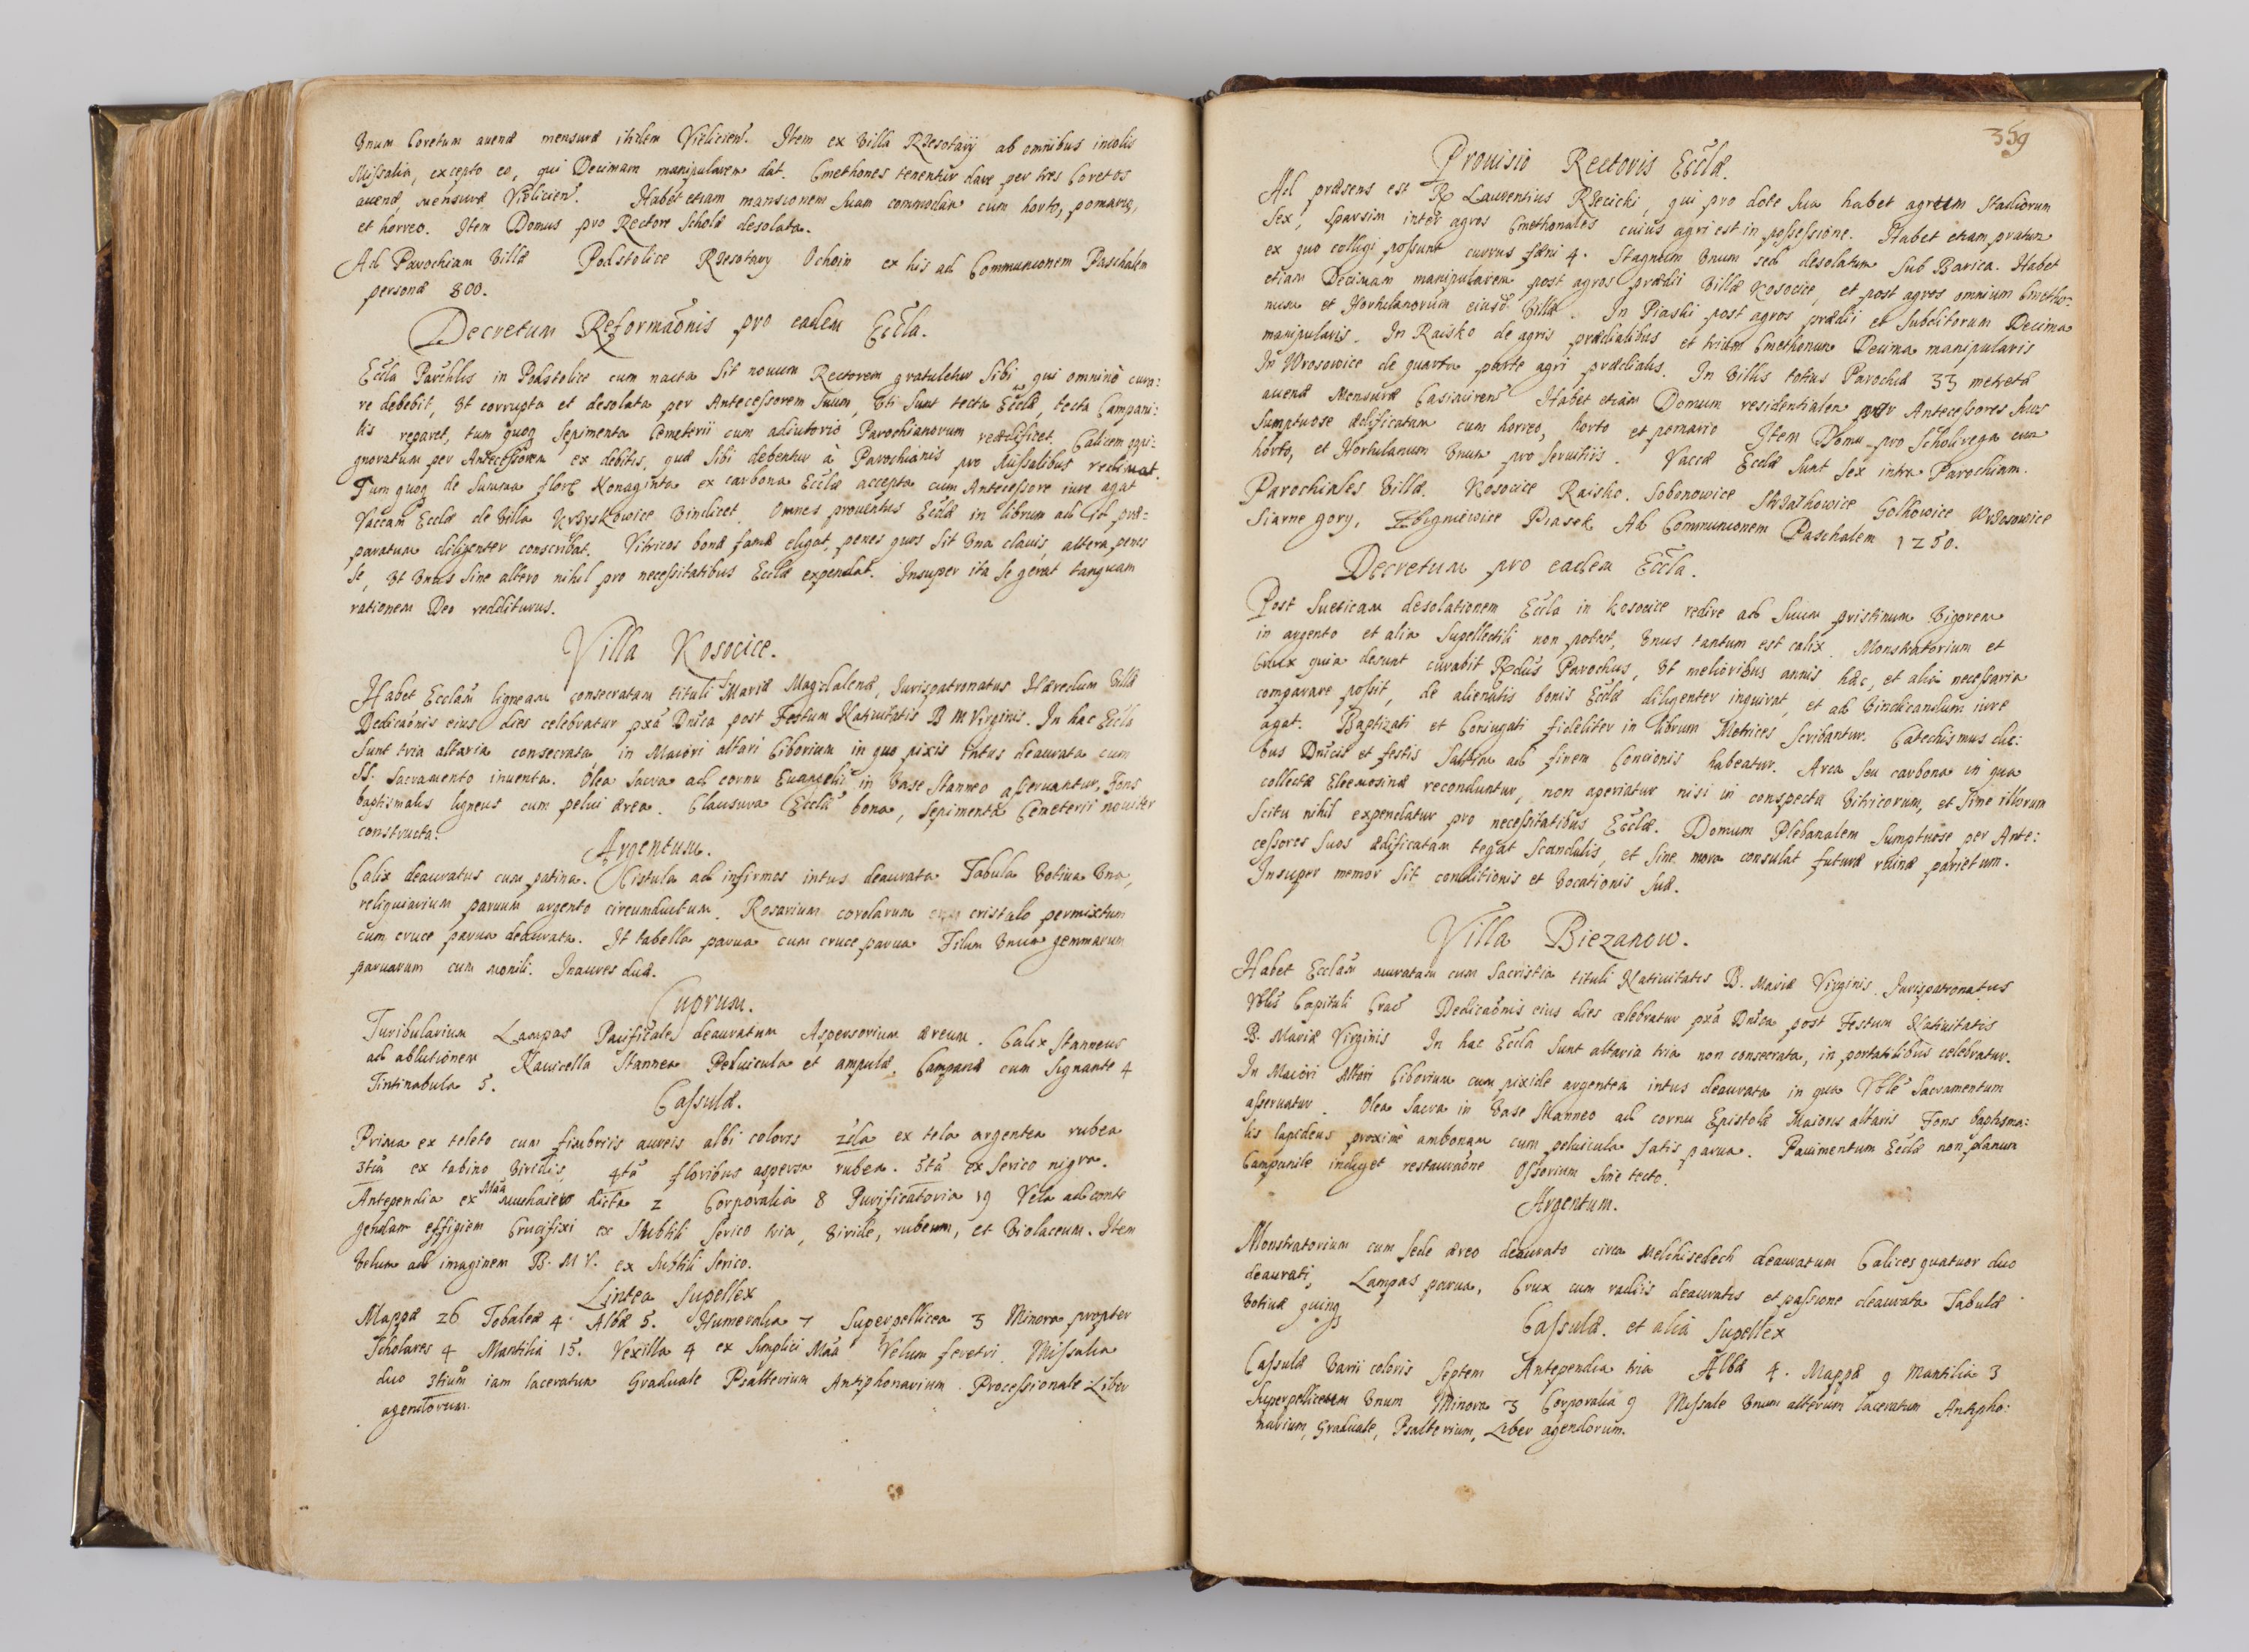 Vnum Coretum auenæ mensuræ ibidem Vielicien. Item ex Villa Rzesotary ab omnibus incolis
Missalia, excepto eo, qui Decimam manipularem dat. Cmethones tenentur dare per tres Coretos
auenæ, mensuræ Vielicien. Habet etiam mansionem suam commodam cum horto, pomario,
et horreo. Item Domus pro Rectore Scholæ desolata.
Ad Parochiam Villæ Podstolice Rzesotary Ochoin ex his ad Communionem Paschalem
personæ 800.
Decretum Reformaonis pro eadem Eccla.
Eccla Parchlis in Podstolice cum nacta sit nouum Rectorem gratuletur sibi qui omninò cura:
re debebit, Vt corrupta et desolata per Antecessorem suum, Vti sunt tecta Ecclæ, tecta Campani:
lis reparet, tum quoq sepimenta Cemeterii cum adiutorio Parochianorum reædificet. Calicem oppi:
gnoratum per Antecessorem ex debitis, quæ sibi debentur à Parochianis pro Missalibus redimat.
Tum quoq de summa flore Nonaginta ex carbona Ecclæ accepta cum Antecessore iure agat
Vaccam Ecclæ de Villa Krzyskowice Vindicet. Omnes prouentus Ecclæ in librum ad id præ:
paratum diligenter conscribat. Vitricos bonæ famæ eligat, penes quos sit Vna clauis, altera penes
se, Vt Vnus sine altero nihil pro necessitatibus Ecclæ expendat. Insuper ita se gerat tanquam
rationem Deo redditurus.
Villa Kosocice.
Habet Ecclam ligneam consecratam tituli S Mariæ Magdalenæ, Iurispatronatus Hæredum Villæ
Dedicaonis eius dies celebratur pxa Dnica post Festum Natiuitatis B M Virginis. In hac Eccla
sunt tria altaria consecrata, in Maiori altari Ciborium in quo pixis intus deaurata cum
SS. Sacramento inuenta. Olea sacra ad cornu Euangelii in Vase stanneo asseruantur, Fons
baptismalis ligneus cum pelui ærea. Clausura Ecclæ bona, sepimenta Cemeterii nouiter
constructa.
Argentum.
Calix deauratus cum patina. Cistula ad infirmos intus deaurata Tabula Votiua Vna,
reliquiarium paruum argento circumductum. Rosarium corolarum cum cristalo permixtum
cum cruce parua deaurata. It tabella parua cum cruce parua Filum Vnum gemmarum
paruarum cum monili. Inaures duæ.
Cuprum.
Turibularium Lampas Pacificale deauratum Aspersorium æreum. Calix Stanneus
ad ablutionem Nauicella Stannea Peluicula et ampulæ. Campanæ cum signante 4
Tintinabula 5.
Casulæ.
Prima ex teleto cum fimbriis aureis albi coloris 2da ex tela argentea rubea
3tia ex tabino Viridis, 4ta floribus aspersa rubea. 5ta ex serico nigro.
Antependia ex Maa muchaiero dicta 2 Corporalia 8 Purificatoria 19 Vela ad conte
gendam effigiem Crucifixi ex subtili serico tria, Viride, rubeum, et Violaceum. Item
Velum ad imaginem B. M V. ex subtili serico.
Lintea Supellex
Mappæ 26 Tobaleæ 4 Albæ 5. Humeralia 7 Superpellicea 3 Minora propter
Scholares 4 Mantilia 15. Vexilla 4 ex simplici Maa Velum feretri. Missalia
duo 3tium iam laceratum Graduale Psalterium Antiphonarium. Processionale Liber
agendorum.
359
Prouisio Rectoris Ecclæ.
Ad præsens est R Laurentius Rzecicki, qui pro dote sua habet agrum stadiorum
sex, sparsim inter agros Cmethonales cuius agri est in possessione. Habet etiam pratum
ex quo colligi possunt currus fæni 4. Stagnum Vnum sed desolatum sub Barica. Habet
etiam Decimam manipularem post agros prædii Villæ Kosocice, et post agros omnium Cmetho:
num et Hortulanorum eiusd Villæ. In Piaski post agros prædii et subditorum Decima
manipularis. In Raisko de agris prædialibus et trium Cmethonum Decima manipularis
In Wrosowice de quarta parte agri prædialis. In Villis totius Parochiæ 33 metretæ
auenæ Mensuræ Casimiren Habet etiam Domum residentialem per Antecessores suos
sumptuose ædificatam cum horreo, horto et pomario Item Domu pro Scholirega cum
horto, et Hortulanum Vnum pro seruitiis. Vaccæ Ecclæ sunt sex intra Parochiam.
Parochiales Villæ. Kosocice Raisko. Sobonowice Strzałkowice Golkowice Wrzosowice
Siarne gory, Zbigniewice Piasek Ad Communionem Paschalem 1250.
Decretum pro eadem Eccla.
Post Sueticam desolationem Eccla in Kosocice redire ad suum pristinum Vigorem
in argento et alia supellectili non potest, Vnus tantum est calix. Monstratorium et
Crux quia desunt curabit Rdus Parochus, Vt melioribus annis hæc, et alia necessaria
comparare possit, de alienatis bonis Ecclæ diligenter inquirat, et ad Vindicandum iure
agat. Baptizati et Coniugati fideliter in librum Metrices scribantur. Catechismus die:
bus Dnicis et festis saltem ad finem Concionis habeatur. Arca seu carbona in qua
collectæ Eleemosinæ reconduntur, non aperiatur nisi in conspectu Vitricorum, et sine illorum
scitu nihil expendatur pro necessitatibus Ecclæ. Domum Plebanalem sumptuose per Ante:
cessores suos ædificatam tegat scandulis, et sine mora consulat futuræ ruinæ parietum.
Insuper memor sit conditionis et Vocationis suæ.
Villa Biezanow.
Habet Ecclam muratam cum Sacristia tituli Natiuitatis B. Mariæ Virginis Iurispatronatus
Vblis Capituli Crac Dedicaonis eius dies celebratur pxa Dnica post Festum Natiuitatis
B. Mariæ Virginis In hac Eccla sunt altaria tria non consecrata, in portatilibus celebratur.
In Maiori Altari Ciborium cum pixide argentea intus deaurata in qua Vble Sacramentum
asseruatur. Olea sacra in Vase stanneo ad cornu Epistolæ Maioris altaris Fons baptisma:
lis lapideus proximè ambonam cum peluicula satis parua. Pauimentum Ecclæ non planum
Campanile indiget restauraone Ossorium sine tecto.
Argentum.
Monstratorium cum sede æreo deaurato circa Melchisedech deauratum Calices quatuor duo
deaurati, Lampas parua, Crux cum radiis deauratis et passione deaurata Tabulæ
Votiuæ quinq
Casulæ. et alia Supellex
Casulæ Varii coloris septem Antependia tria Albæ 4. Mappæ 9 Mantilia 3
Superpelliceum Vnum Minora 3 Corporalia 9 Missale Vnum alterum laceratum Antipho:
narium, Graduale, Psalterium, Liber agendorum.